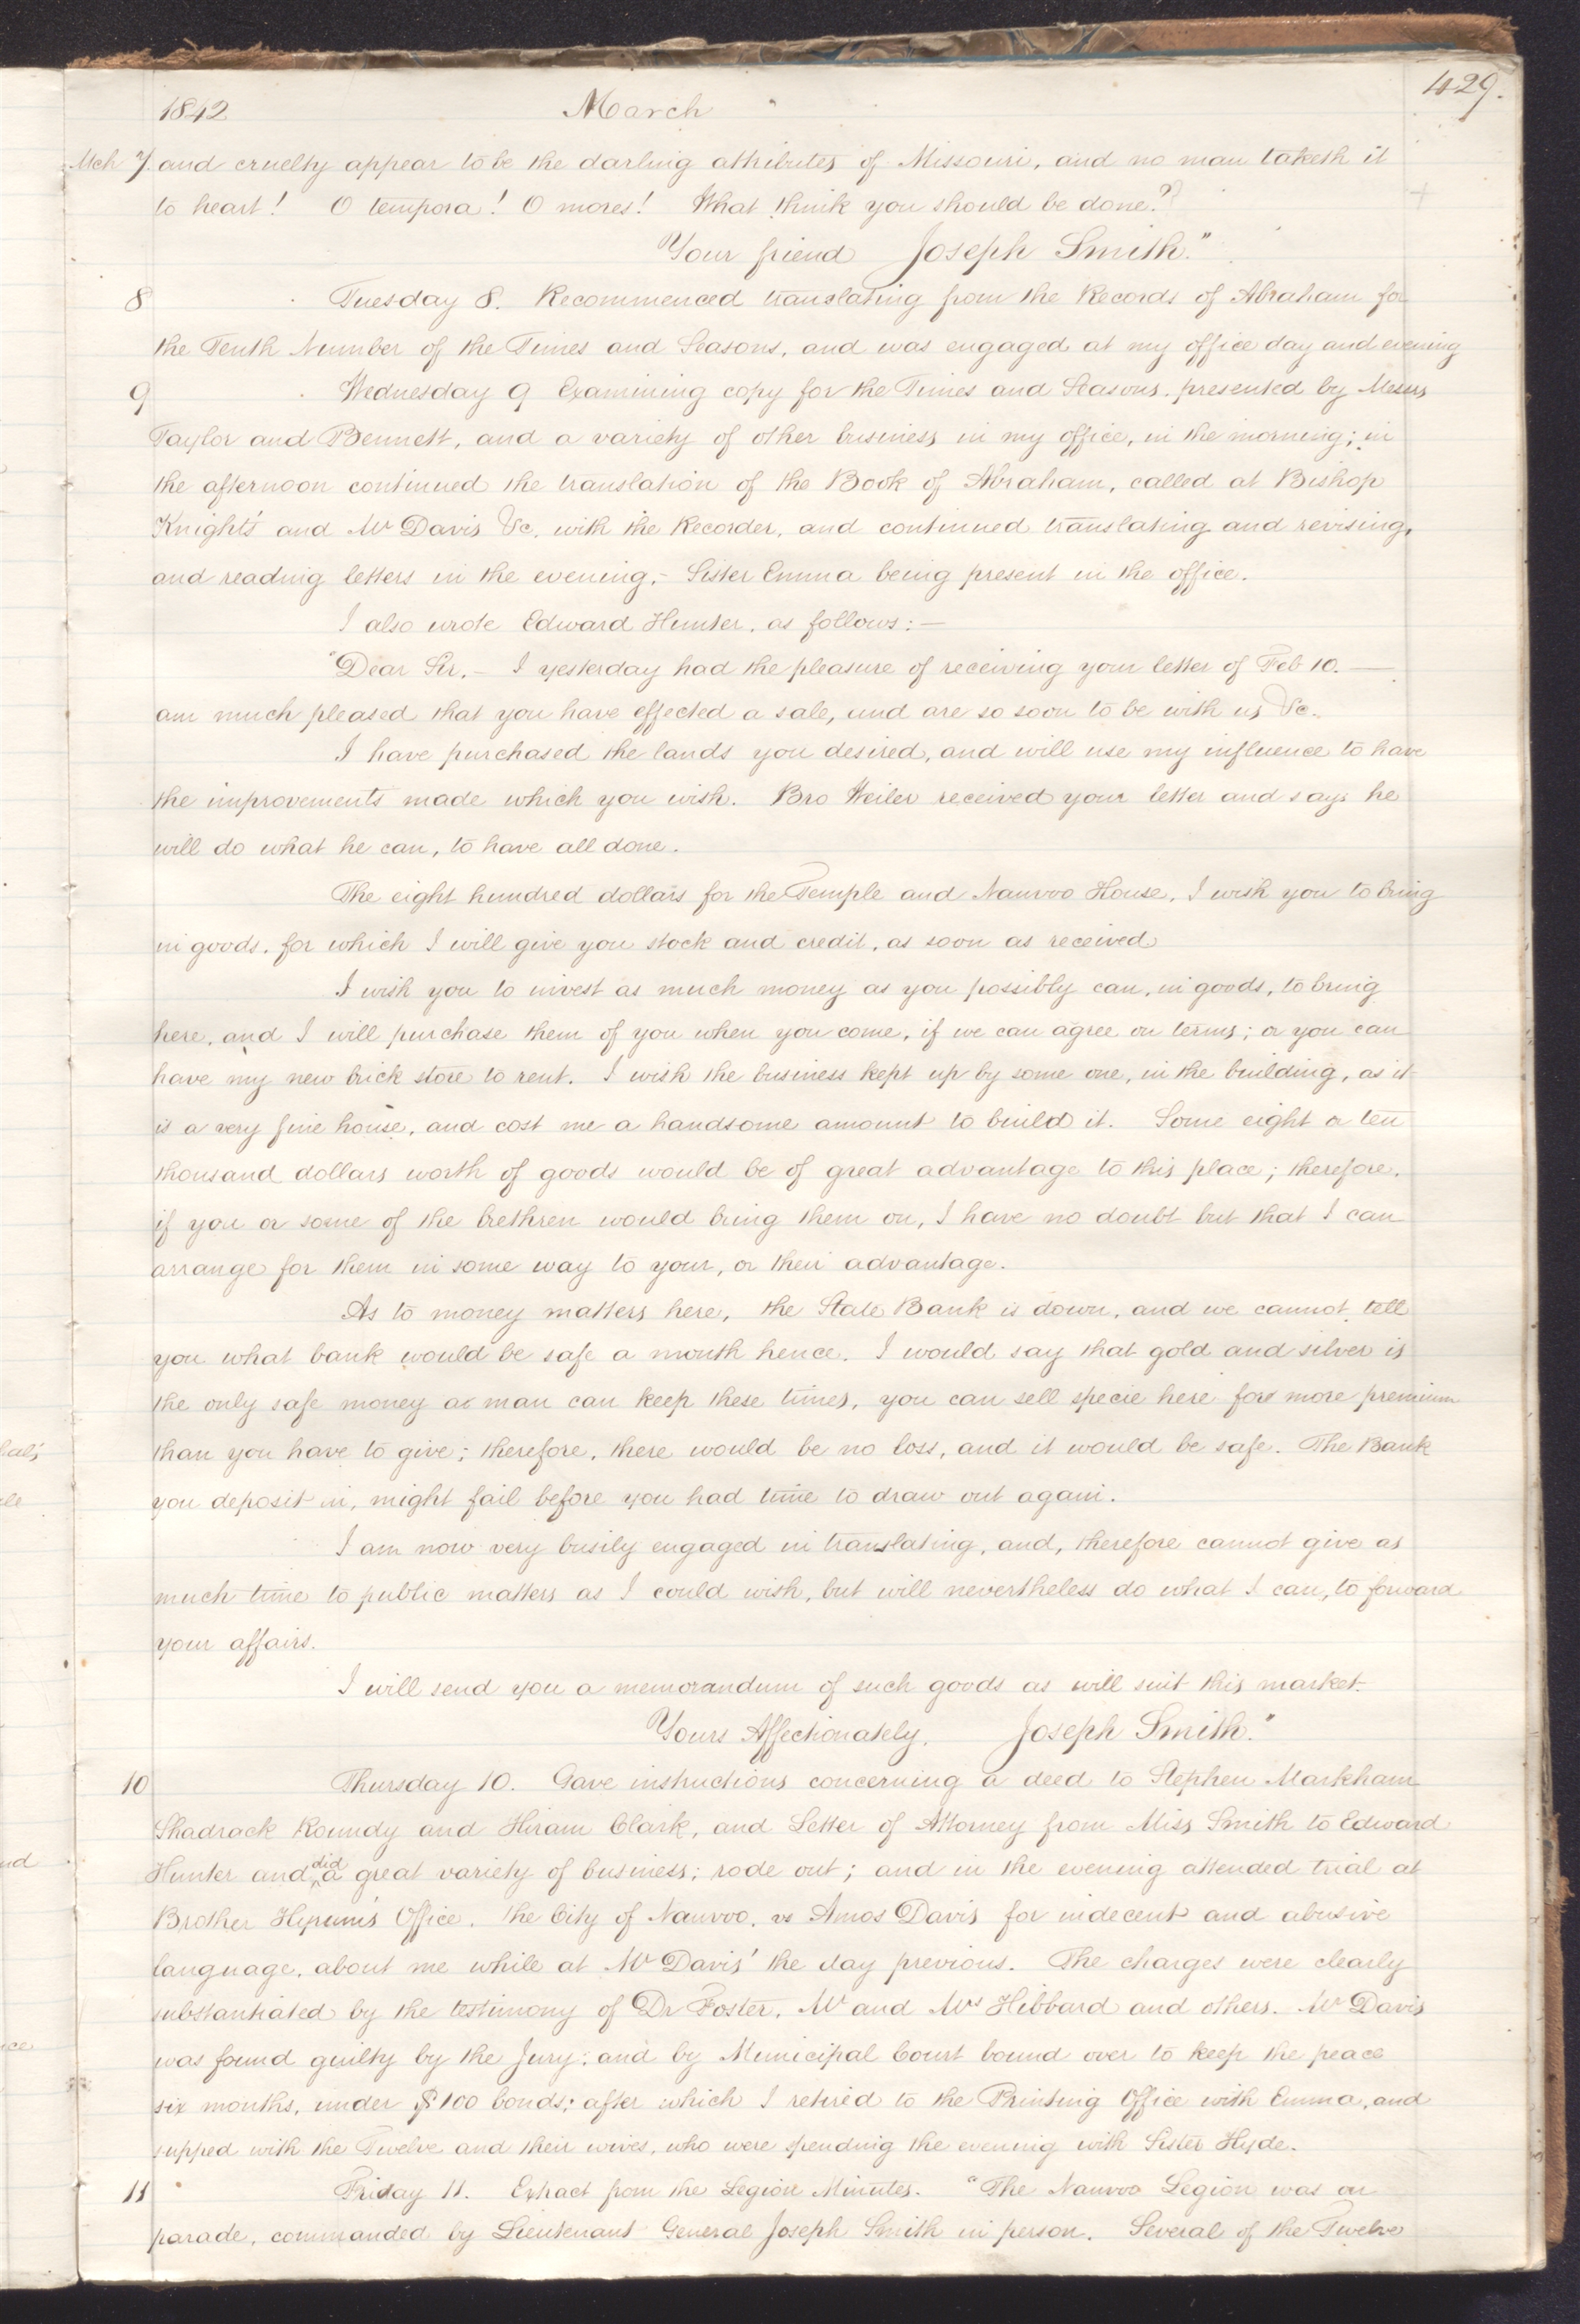 429.
1842 March
Mch 7. and cruelty appear to be the darling attributes of Missouri, and no man taketh it
to heart! O tempora! O mores! What think you should be done?
Your friend Joseph Smith."
8 Tuesday 8. Recommenced translating from the Records of Abraham for
the Tenth Number of the Times and Seasons, and was engaged at my office day and evening
9 Wednesday 9 Examining copy for the Times and Seasons, presented by Messrs
Taylor and Bennett, and a variety of other business in my office, in the morning; in
the afternoon continued the translation of the Book of Abraham, called at Bishop
Knights' and Mr Davis &c, with the Recorder, and continued translating and revising,
and reading letters in the evening,- Sister Emma being present in the office.
I also wrote Edward Hunter, as follows:—
"Dear Sir,- I yesterday had the pleasure of receiving your letter of Feb 10.—
am much pleased that you have effected a sale, and are so soon to be with us &c.
I have purchased the lands you desired, and will use my influence to have
the improvements made which you wish. Bro Weiler received your letter and says he
will do what he can, to have all done.
The eight hundred dollars for the Temple and Nauvoo House, I wish you to bring
in goods, for which I will give you stock and credit, as soon as received
I wish you to invest as much money as you possibly can, in goods, to bring
here, and I will purchase them of you when you come, if we can agree on terms; or you can
have my new brick store to rent. I wish the business kept up by some one, in the building, as it
is a very fine house, and cost me a handsome amount to build it. Some eight or ten
thousand dollars worth of goods would be of great advantage to this place; therefore,
if you or some of the brethren would bring them on, I have no doubt but that I can
arrange for them in some way to your, or their advantage.
As to money matters here, the State Bank is down, and we cannot tell
you what bank would be safe a month hence. I would say that gold and silver is
the only safe money a man can keep these times, you can sell specie here for more premium
than you have to give; therefore, there would be no loss, and it would be safe. The Bank
you deposit in, might fail before you had time to draw out again.
I am now very busily engaged in translating, and, therefore cannot give as
much time to public matters as I could wish, but will nevertheless do what I can, to forward
your affairs.
I will send you a memorandum of such goods as will suit this market.
Yours Affectionately, Joseph Smith."
10 Thursday 10. Gave instructions concerning a deed to Stephen Markham
Shadrack Roundy and Hiram Clark, and Letter of Attorney from Miss Smith to Edward
Hunter and did a great variety of business; rode out; and in the evening attended trial at
Brother Hyrum's Office, the City of Nauvoo, vs Amos Davis for indecent and abusive
language, about me while at Mr Davis' the day previous. The charges were clearly
substantiated by the testimony of Dr Foster, Mr and Mrs Hibbard and others. Mr Davis
was found guilty by the Jury; and by Municipal Court bound over to keep the peace
six months, under $100 bonds; after which I retired to the Printing Office with Emma, and
supped with the Twelve and their wives, who were spending the evening with Sister Hyde.
11 Friday 11. Extract from the Legion Minutes. "The Nauvoo Legion was on
parade, commanded by Lieutenant General Joseph Smith in person. Several of the Twelve